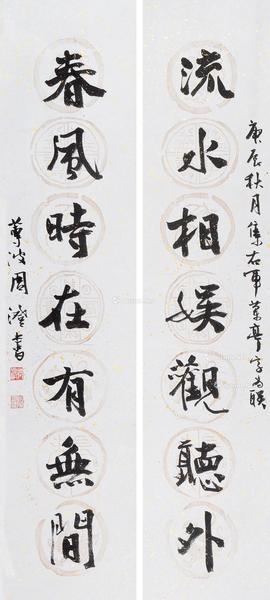 庚辰秋月集右军兰亭字为联
流水相娱觀聽外
春風時在有無間
萼波周澄書